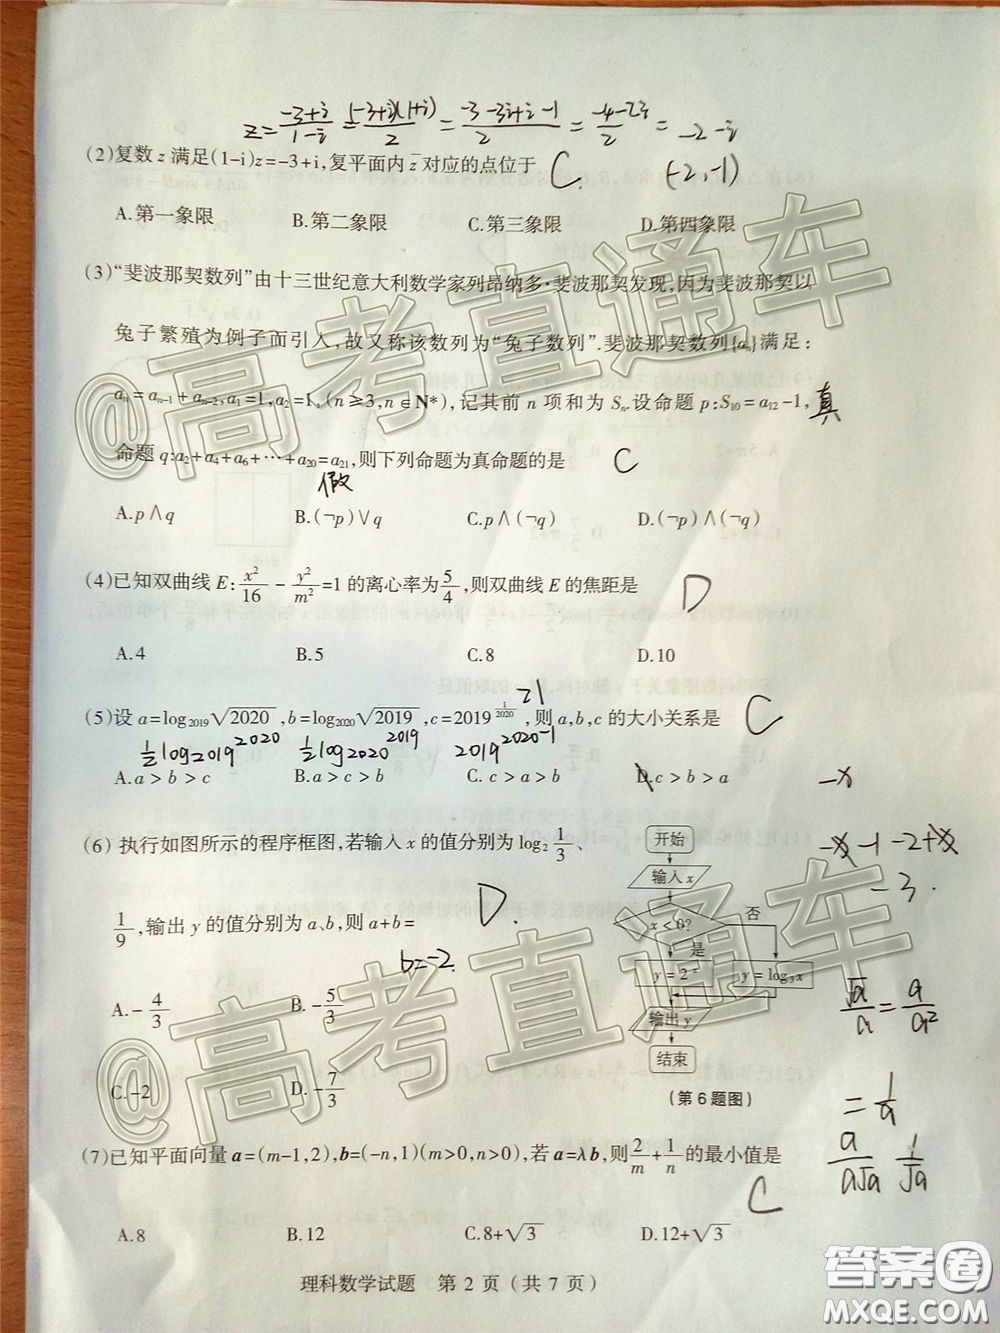 z=\frac{-3+i}{1-i}=\frac{(-3+i)(1+i)}{2}=\frac{-3-3i+i-1}{2}=\frac{-4-2i}{2}=-2-i
(2)复数 z 满足(1-i)z=-3+i,复平面内 \bar{z} 对应的点位于 C. (-2,-1)
A.第一象限 B.第二象限 C.第三象限 D.第四象限
(3)“斐波那契数列”由十三世纪意大利数学家列昂纳多·斐波那契发现,因为斐波那契以
兔子繁殖为例子而引入,故又称该数列为“兔子数列”.斐波那契数列{aₙ}满足:
aₙ=aₙ₋₁+aₙ₋₂,a₁=1,a₂=1,(n≥3,n∈N*),记其前 n 项和为 Sₙ.设命题 p:S₁₀=a₁₂-1, 真
命题 q:a₂+a₄+a₆+⋯+a₂₀=a₂₁,则下列命题为真命题的是 C
假
A.p∧q B.(¬p)∨q C.p∧(¬q) D.(¬p)∧(¬q)
(4)已知双曲线 E:\frac{x²}{16}-\frac{y²}{m²}=1 的离心率为\frac{5}{4},则双曲线 E 的焦距是 D
A.4 B.5 C.8 D.10
21
(5)设 a=log₂₀₁₉√2020,b=log₂₀₂₀√2019,c=2019^{\frac{1}{2020}},则 a,b,c 的大小关系是 C
½log2019^2020 ½log2020^2019 2019^2020-1
A.a>b>c B.a>c>b C.c>a>b D.c>b>a -x
(6) 执行如图所示的程序框图,若输入 x 的值分别为 log₂\frac{1}{3}、
\frac{1}{9},输出 y 的值分别为 a、b,则 a+b= D.
b=-2.
A.-\frac{4}{3} B.-\frac{5}{3}
C.-2 D.-\frac{7}{3}
开始
输入 x
x<0?
否
是
y=log₃x
输出 y
结束
(第6题图)
-x-1-2+x
-3.
\frac{√a}{a}=\frac{a}{a²}
=\frac{1}{a}
\frac{a}{a√a} \frac{1}{√a}
(7)已知平面向量 a=(m-1,2),b=(-n,1)(m>0,n>0),若 a=λb,则\frac{2}{m}+\frac{1}{n}的最小值是
C
A.8 B.12 C.8+√3 D.12+√3
理科数学试题 第 2 页(共 7 页)
@高考直通车
@高考直通车
答案圈
MXQE.COM